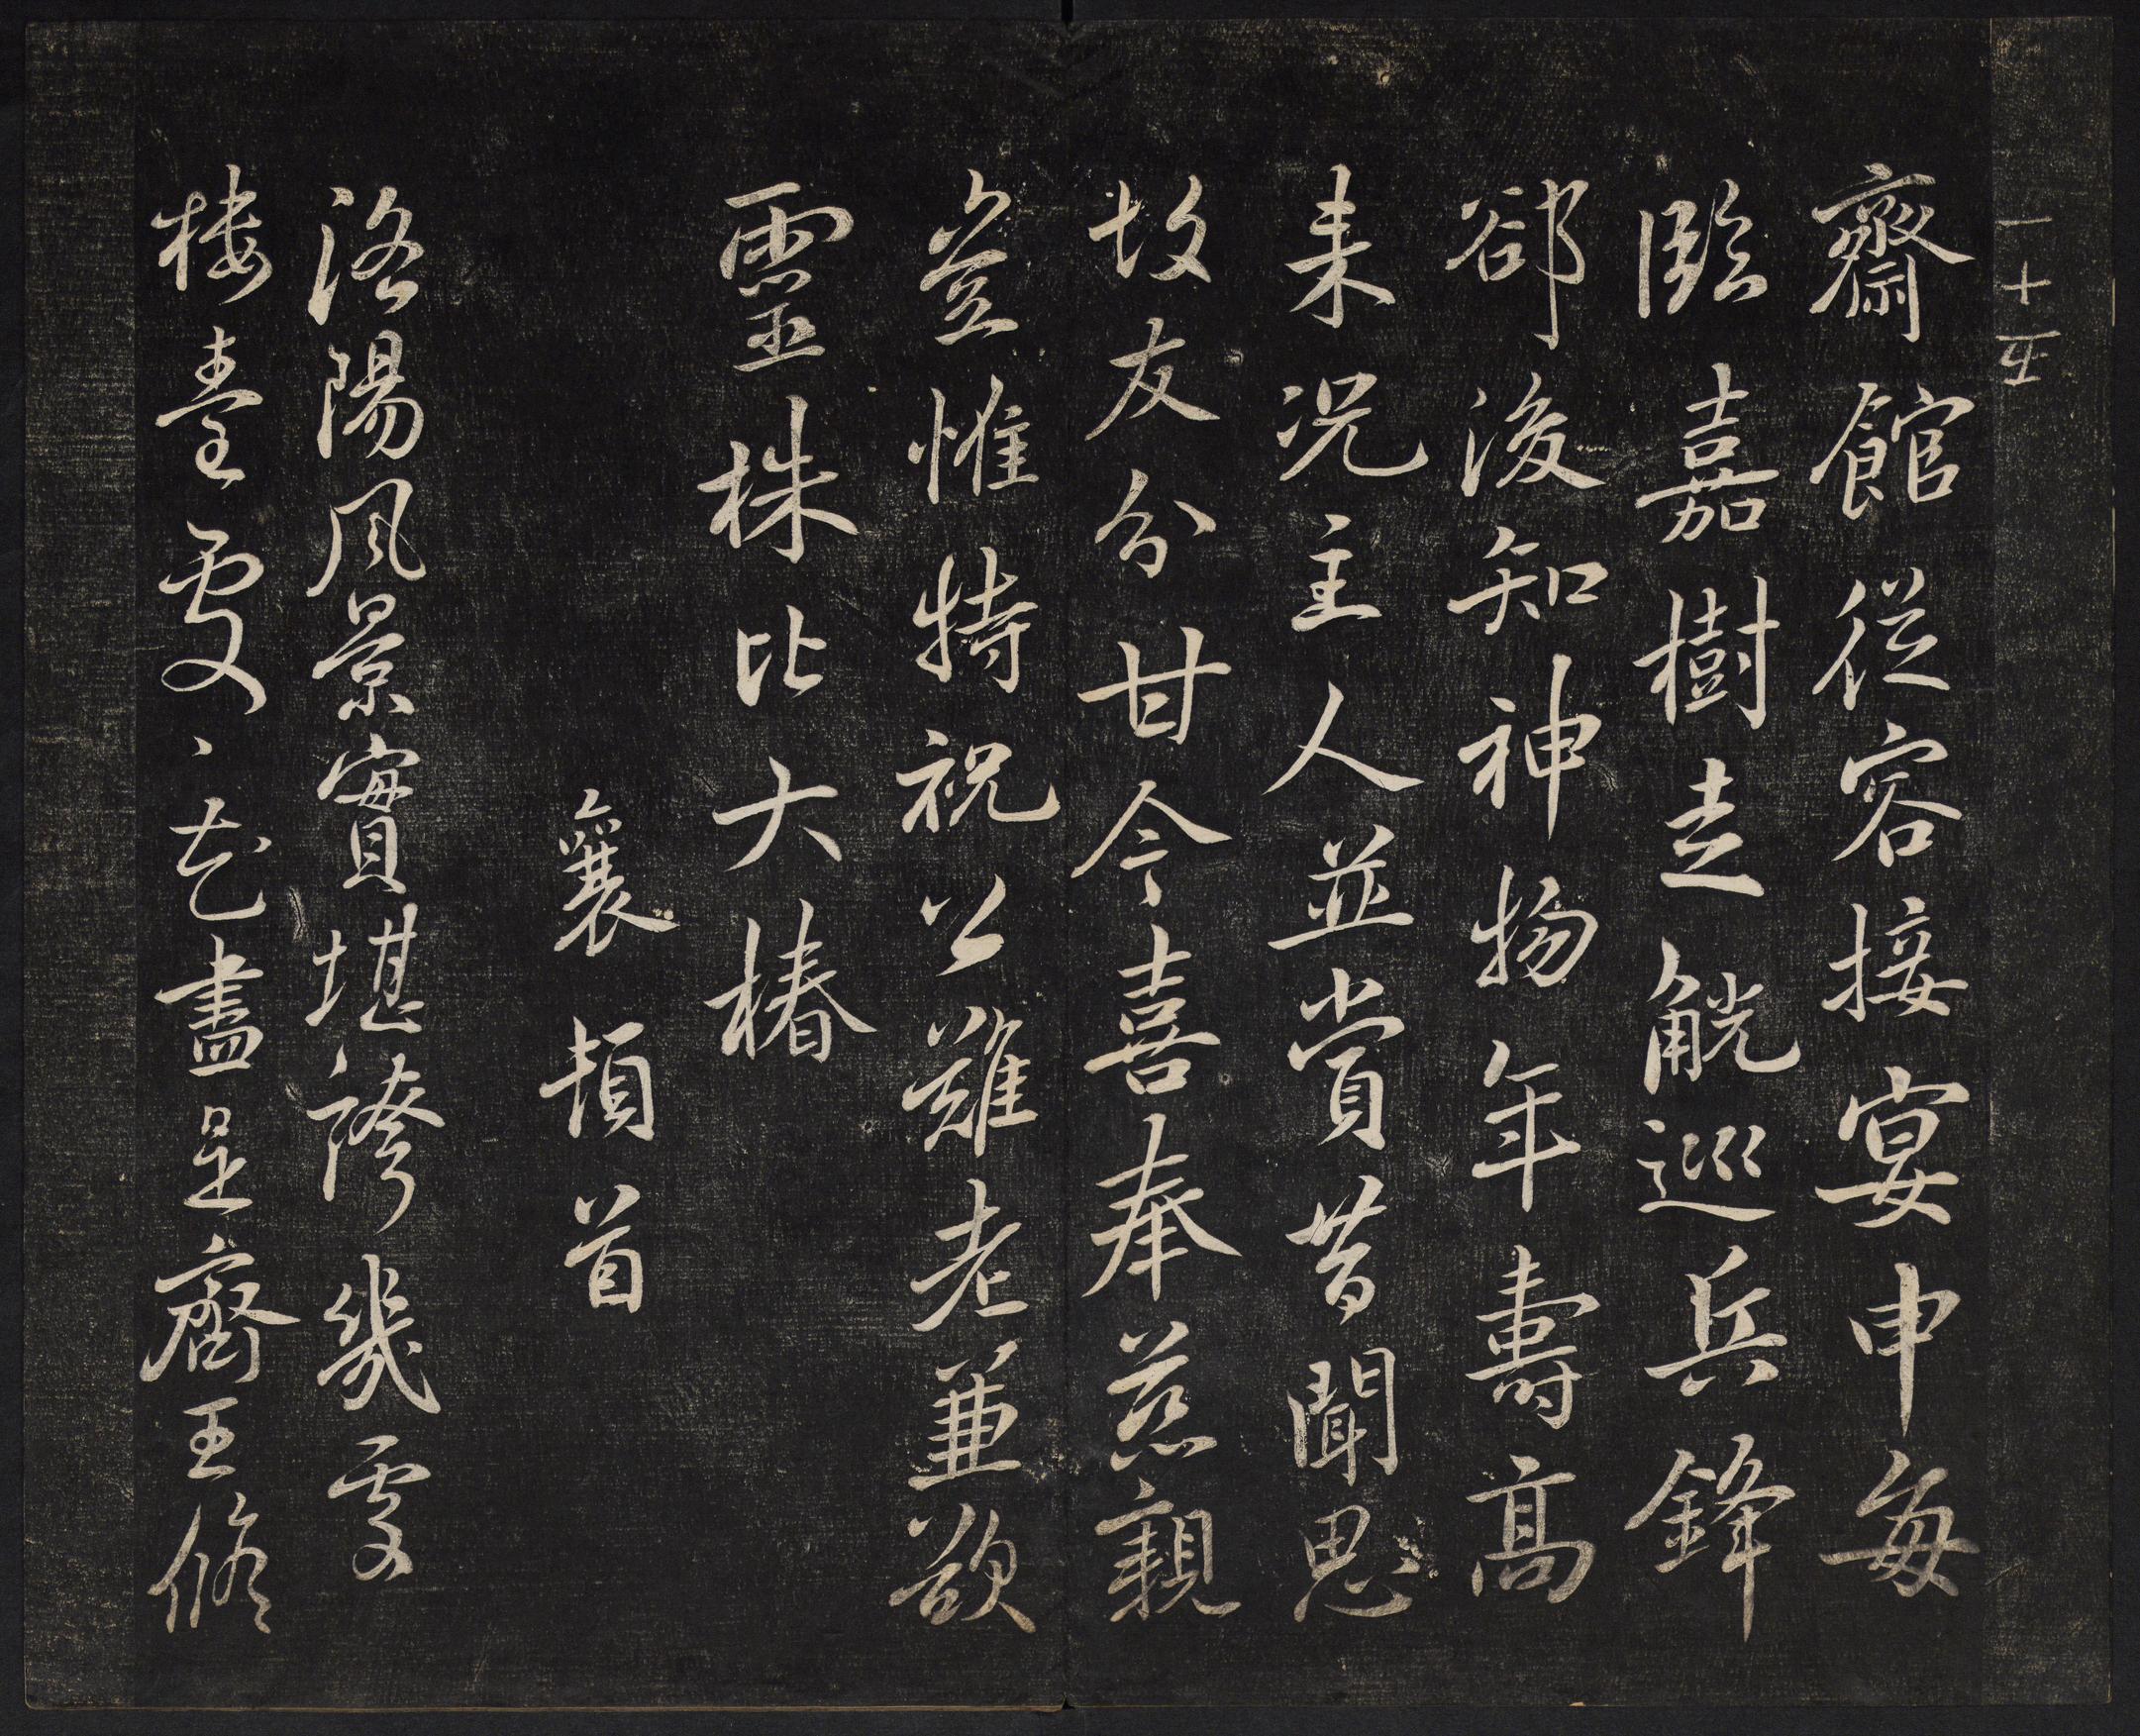 一十五
齋館從容接宴申每
臨嘉樹走觥巡兵鋒
卻後知神物年壽高
来况主人並賞昔聞思
故友分甘今喜奉慈親
豈惟特祝公難老兼欲
靈株比大椿
襄頓首
洛陽風景實堪誇幾處
樓臺處〻花盡是齊王修